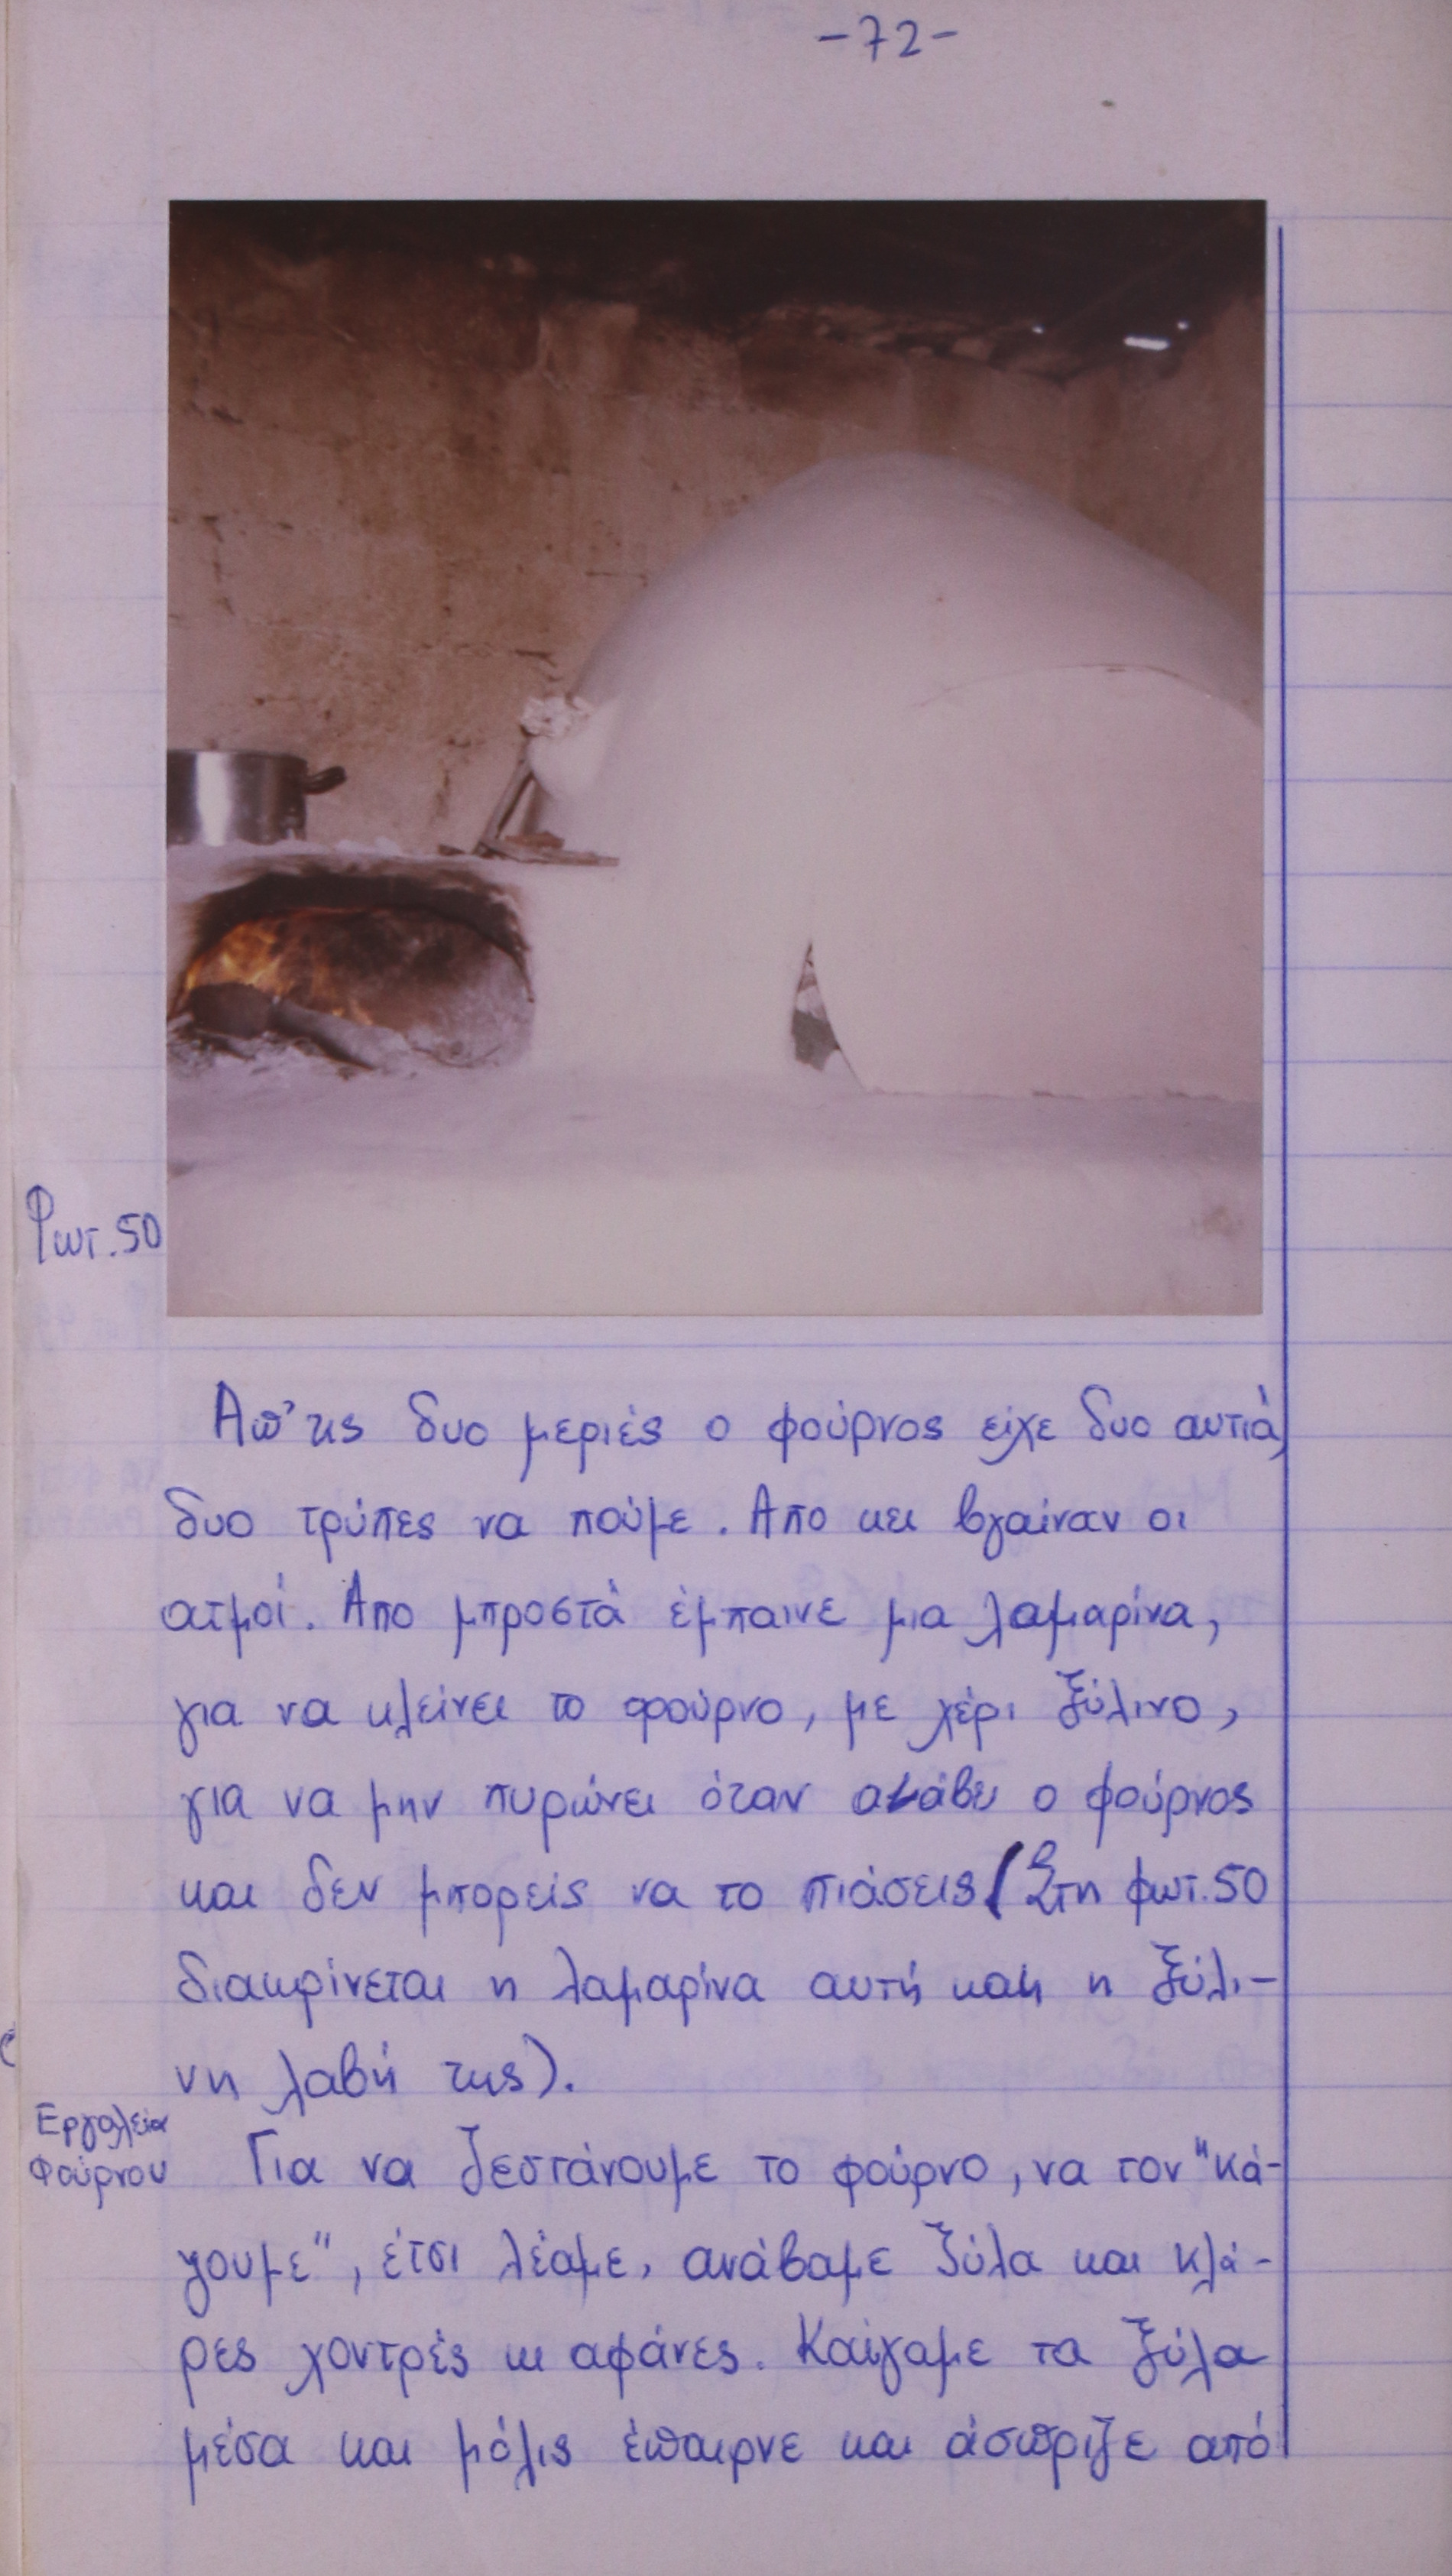 -72-
Φωτ. 50
Απ' τις δυο μεριές ο φούρνος είχε δυο αυτιά,
δυο τρύπες να πούμε. Απο κει βγαίναν οι
ατμοί. Απο μπροστά έμπαινε μια λαμαρίνα,
για να κλείνει το φούρνο, με χέρι ξύλινο,
για να μην πυρώνει όταν ανάβει ο φούρνος
και δεν μπορείς να το πιάσεις (Στη φωτ. 50
διακρίνεται η λαμαρίνα αυτή και η ξύλι-
νη λαβή της).
Εργαλεία
Φούρνου
Για να ζεστάνουμε το φούρνο, να τον "κά-
γουμε", έτσι λέαμε, ανάβαμε ξύλα και κλά-
ρες χοντρές κι αφάνες. Καίγαμε τα ξύλα
μέσα και μόλις έπαιρνε και άσπριζε από